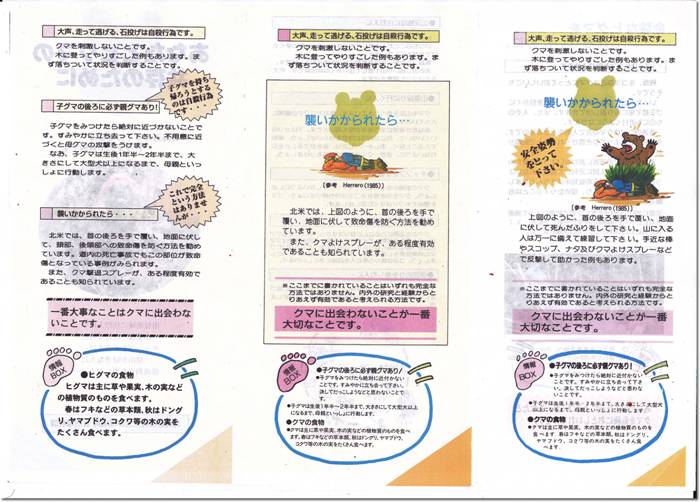 大声、走って逃げる、石投げは自殺行為です。
クマを刺激しないことです。
木に登ってやりすごした例もあります。ま
ず落ちついて状況を判断することです。
子グマを持ち
帰ろうとする
のは自殺行為
です・・
子グマの後ろに必ず親グマあり!
子グマをみつけたら絶対に近づかないことで
す。すみやかに立ち去って下さい。不用意に近
づくと母グマの攻撃をうけます。
なお、子グマは生後1年半〜2年半まで、大
きさにして大型犬以上になるまで、母親といっ
しょに行動します。
これで完全
という方法
はありませ
んが・・・
襲いかかられたら・・・・
北米では、首の後ろを手で覆い、地面に伏し
て、頸部、後頭部への致命傷を防ぐ方法を勧め
ています。道内の死亡事故でもこの部位が致命
傷となっている事例がみられます。
また、クマ撃退スプレーが、ある程度有効で
あることも知られています。
一番大事なことはクマに出会わな
いことです。
情報
BOX
●ヒグマの食物
ヒグマは主に草や果実、木の実など
の植物質のものを食べます。
春はフキなどの草本類、秋はドング
リ、ヤマブドウ、コクワ等の木の実を
たくさん食べます。
大声、走って逃げる、石投げは自殺行為です。
クマを刺激しないことです。
木に登ってやりすごした例もあります。ま
ず落ちついて状況を判断することです。
襲いかかられたら…
(参考 Herrero(1985))
北米では、上図のように、首の後ろを手で
覆い、地面に伏して致命傷を防ぐ方法を勧め
ています。
また、クマよけスプレーが、ある程度有効
であることも知られています。
※ここまでに書かれていることはいずれも完全な
方法ではありません。内外の研究と経験からと
りあえず有効であると考えられる方法です。
クマに出会わないことが一番
大切なことです。
情報
BOX
●子グマの後ろに必ず親グマあり!
●子グマをみつけたら絶対に近付かない
ことです。すみやかに立ち去って下さ
い。決してだっこしようなどと思わな
いことです。
●子グマは生後1年半〜2年半まで、大きさにして大型犬以
上になるまで、母親といっしょに行動します。
●クマの食物
●クマは主に草や果実、木の実などの植物質のものを食べ
ます。春はフキなどの草本類、秋はドングリ、ヤマブドウ、
コクワ等の木の実をたくさん食べます。
大声、走って逃げる、石投げは自殺行為です。
クマを刺激しないことです。
木に登ってやりすごした例もあります。ま
ず落ちついて状況を判断することです。
襲いかかられたら…
安全姿勢
をとって
下さい。
(参考 Herrero(1985))
上図のように、首の後ろを手で覆い、地面
に伏して死んだふりをして下さい。山に入る
人は万一に備えて練習して下さい。手近な棒
やスコップ、ナタ及びクマよけスプレーなど
で反撃して助かった例もあります。
※ここまでに書かれていることはいずれも完全な
方法ではありません。内外の研究と経験からと
りあえず有効であると考えられる方法です。
クマに出会わないことが一番
大切なことです。
情報
BOX
●子グマの後ろに必ず親グマあり!
●子グマをみつけたら絶対に近付かない
ことです。すみやかに立ち去って下さ
い。決してだっこしようなどと思わな
いことです。
●子グマは生後1年半〜2年半まで、大きさにして大型犬
以上になるまで、母親といっしょに行動します。
●クマの食物
●クマは主に草や果実、木の実などの植物質のものを食
べます。春はフキなどの草本類、秋はドングリ、
ヤマブドウ、コクワ等の木の実をたくさん食べ
ます。